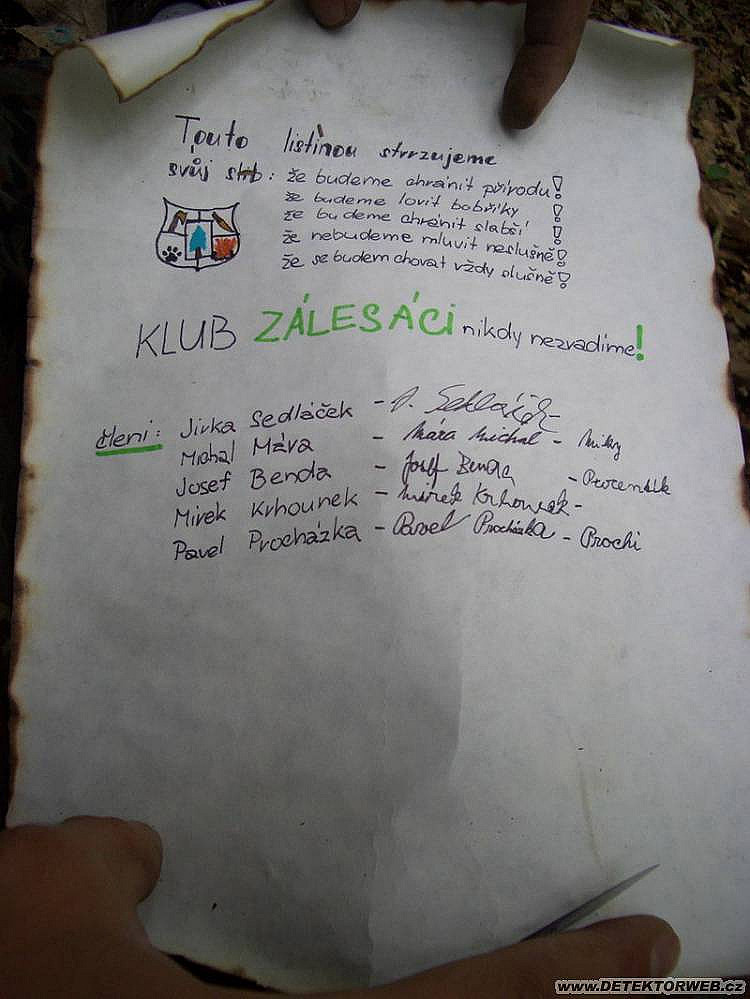 Touto listinou stvrzujeme
svůj slib: že budeme chránit přírodu!
že budeme lovit bobříky !
že budeme chránit slabší !
že nebudeme mluvit neslušně!
že se budem chovat vždy slušně!
KLUB ZÁLESÁCI nikdy nezvadíme!
členi: Jirka Sedláček - J. Sedláček
Michal Máva - Máva Michal - Miky
Josef Benda - Josef Benda - Procenťák
Mirek Krhounek - Mirek Krhounek -
Pavel Procházka - Pavel Procházka - Prochi
www.DETEKTORWEB.cz